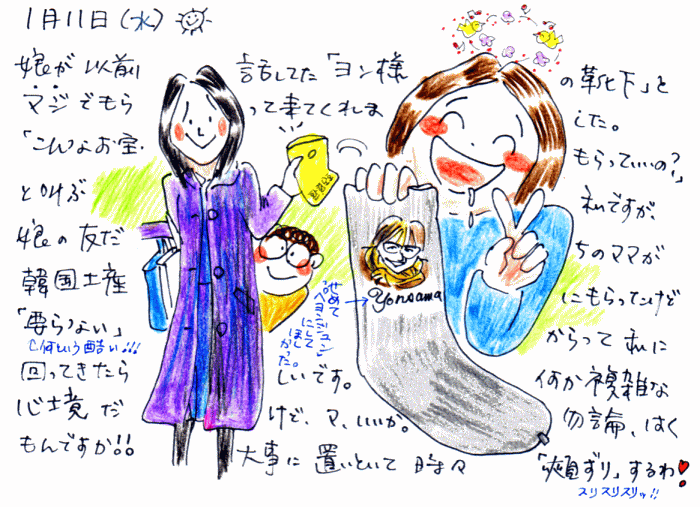 1月11日(水)
娘が以前 話してた「ヨン様 の靴下」と
マジでもら って来てくれま した。
「こんなお宝、 もらっていいの?」
と叫ぶ 私ですが、
娘の友だ ちのママが
韓国土産 にもらってけど
「要らない」 がらって 私に
何という酷い!!!
回ってきたら しいです。 何か複雑な
心境だ けど、マ、いいが。 勿論、はく
もんですか!! 大事に置いといて 時々 「頬ずり」するわ!
スリスリスリッ!!
せめて
"ペヨンジュン"
にして
ほし
かった。
Yonsama